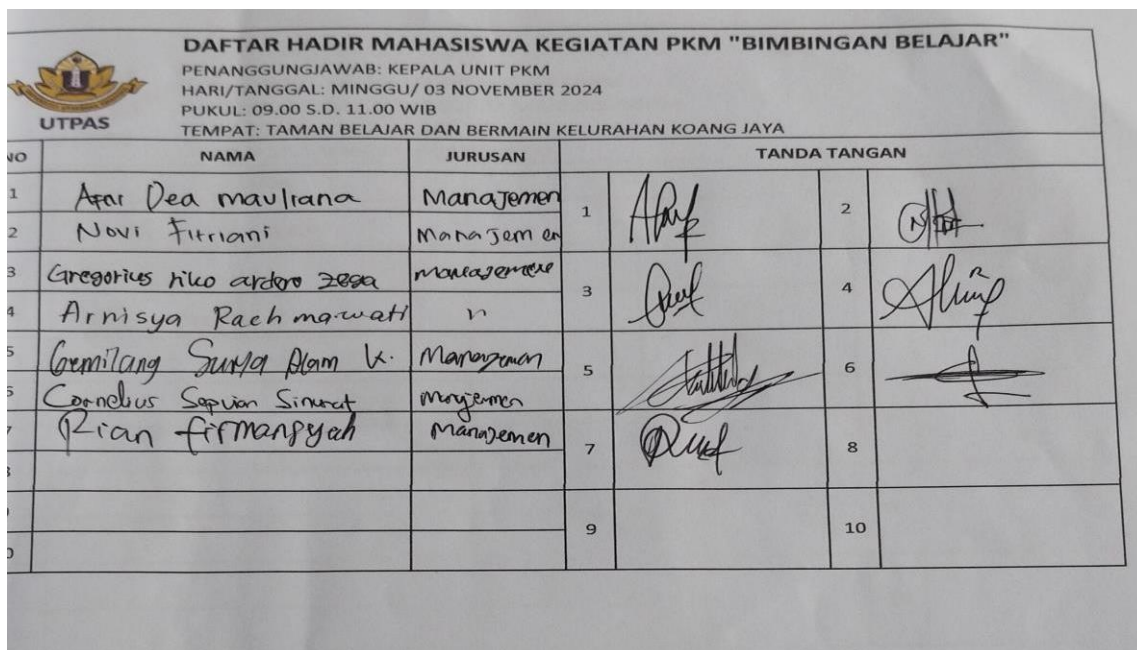 DAFTAR HADIR MAHASISWA KEGIATAN PKM "BIMBINGAN BELAJAR"
PENANGGUNGJAWAB: KEPALA UNIT PKM
HARI/TANGGAL: MINGGU/ 03 NOVEMBER 2024
PUKUL: 09.00 S.D. 11.00 WIB
UTPAS
TEMPAT: TAMAN BELAJAR DAN BERMAIN KELURAHAN KOANG JAYA
NO NAMA JURUSAN TANDA TANGAN
1 Dea mauliana Manajemen 1 2
2 Novi Fitriani Manajemen
3 Gregorius riko 3 4
4 Arnisya Rachmawati
5 Gemilang Surya Alam K. 5 6
Cornelius Sinurat
Rian firmansyah Manajemen 7 8
9 10